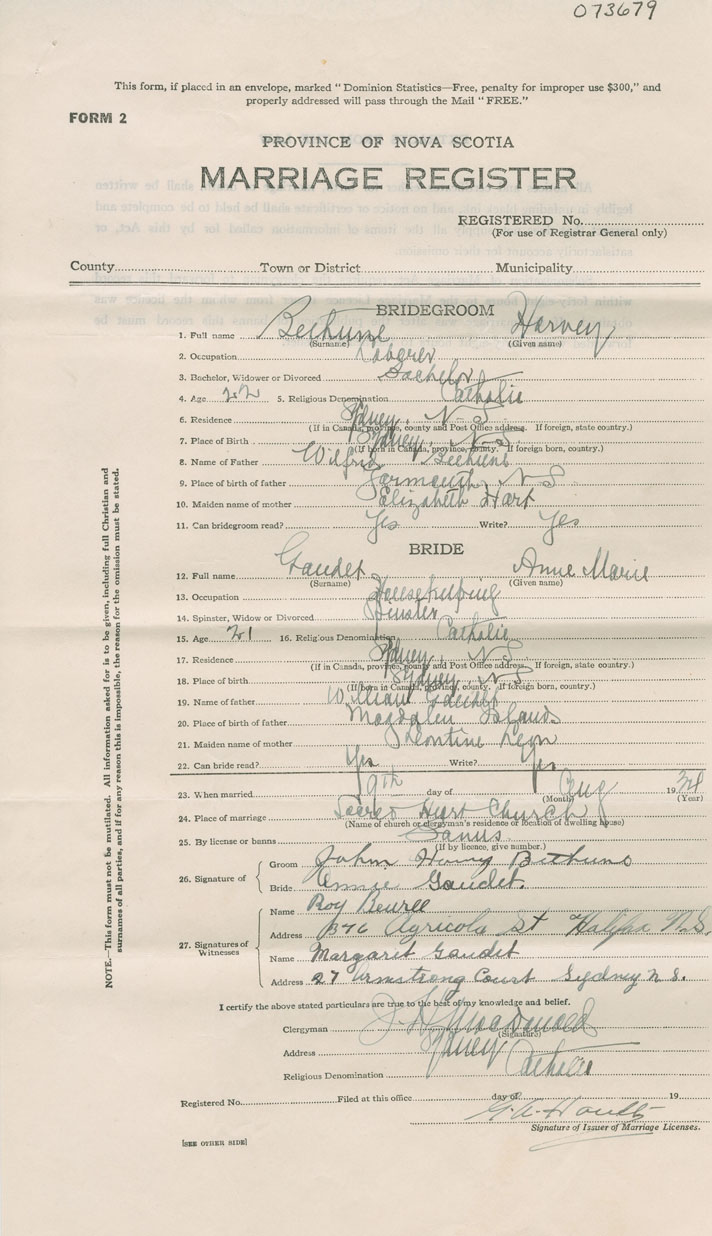 073679
This form, if placed in an envelope, marked "Dominion Statistics—Free, penalty for improper use $300," and
properly addressed will pass through the Mail "FREE."
FORM 2
PROVINCE OF NOVA SCOTIA
MARRIAGE REGISTER
REGISTERED No.
(For use of Registrar General only)
County Town or District Municipality
BRIDEGROOM
1. Full name Bethune Harvey
(Surname) (Given name)
2. Occupation Laborer
3. Bachelor, Widower or Divorced Bachelor
4. Age 22 5. Religious Denomination Catholic
6. Residence Sydney, N S
(If in Canada, province, county and Post Office address. If foreign, state country.)
7. Place of Birth Sydney, N S
(If born in Canada, province, county. If foreign born, country.)
8. Name of Father Wilfrid Bethune
9. Place of birth of father Yarmouth, N S
10. Maiden name of mother Elizabeth Hart
11. Can bridegroom read? Yes Write? Yes
BRIDE
12. Full name Gaudet Anne Marie
(Surname) (Given name)
13. Occupation Housekeeping
14. Spinster, Widow or Divorced Spinster
15. Age 21 16. Religious Denomination Catholic
17. Residence Sydney, N S
(If in Canada, province, county and Post Office address. If foreign, state country.)
18. Place of birth Sydney, N S
(If born in Canada, province, county. If foreign born, country.)
19. Name of father William Gaudet
20. Place of birth of father Magdalen Islands
21. Maiden name of mother Leontine
22. Can bride read? Yes Write? Yes
23. When married 9th day of Aug 19
(Month) (Year)
24. Place of marriage Sacred Heart Church
(Name of church or clergyman's residence or location of dwelling house)
25. By license or banns Banns
(If by licence, give number.)
26. Signature of
Groom John Harvy Bethune
Bride Annie Gaudet.
27. Signatures of Witnesses
Name Roy
Address Agricola St Halifax N.S.
Name Margaret Gaudet
Address 27 Armstrong Court Sydney N S.
I certify the above stated particulars are true to the best of my knowledge and belief.
Clergyman
(Signature)
Address Sydney
Religious Denomination Catholic
Registered No. Filed at this office day of 19
Signature of Issuer of Marriage Licenses.
[SEE OTHER SIDE]
NOTE.—This form must not be mutilated. All information asked for is to be given, including full Christian and
surnames of all parties, and if for any reason this is impossible, the reason for the omission must be stated.